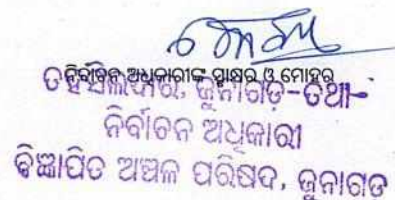 ନିର୍ବାଚନ ଅଧିକାରୀଙ୍କ ସ୍ୱାକ୍ଷର ଓ ମୋହର
ତହସିଲଦାର, ଜୁନାଗଡ-ତଥା-
ନିର୍ବାଚନ ଅଧିକାରୀ
ବିଜ୍ଞାପିତ ଅଞ୍ଚଳ ପରିଷଦ, ଜୁନାଗଡ